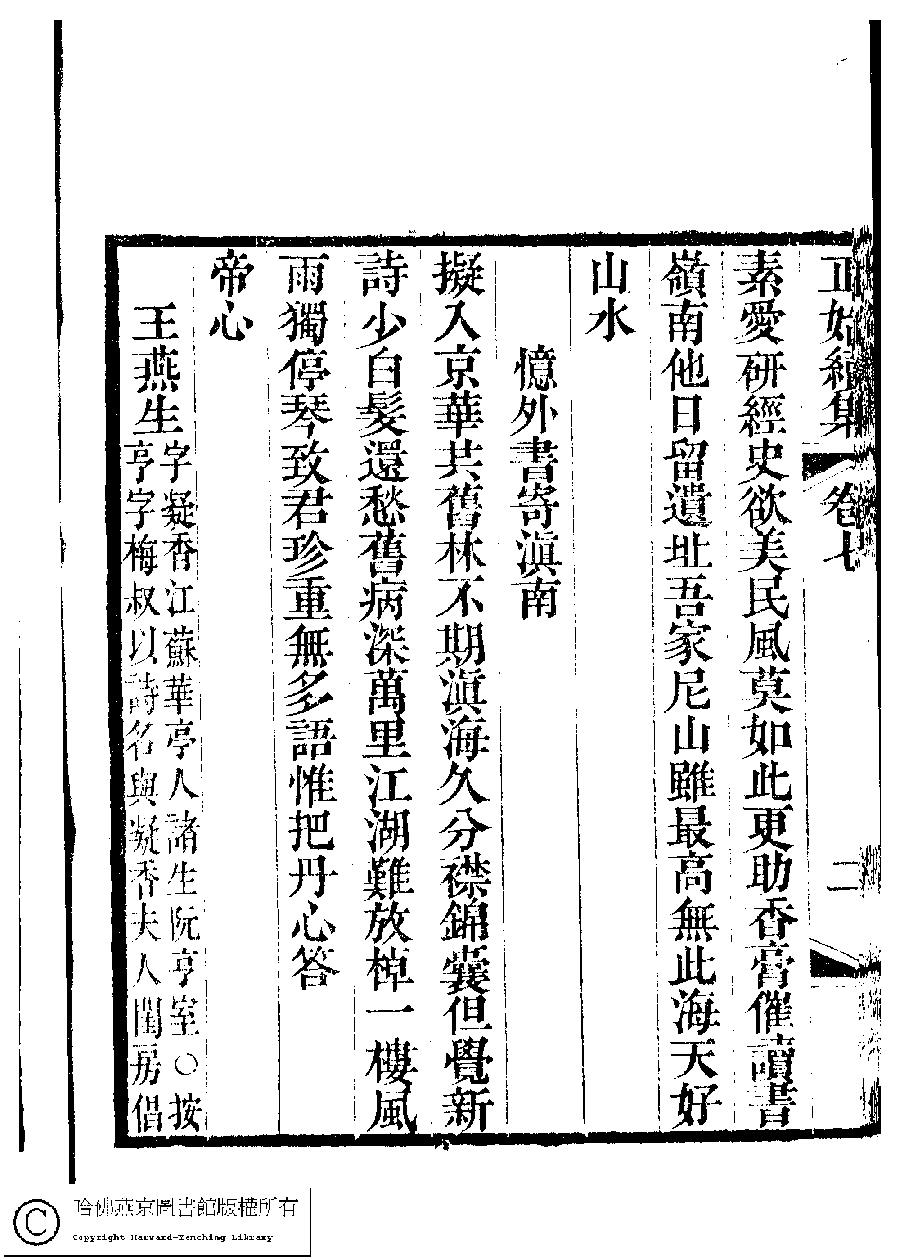 正始續集 卷七 二
素愛研經史欲美民風莫如此更助香膏催讀書
嶺南他日留遺址吾家尼山雖最高無此海天好
山水
憶外書寄滇南
擬入京華共舊林不期滇海久分襟錦囊但覺新
詩少白髮還愁舊病深萬里江湖難放棹一樓風
雨獨停琴致君珍重無多語惟把丹心答
帝心
王燕生字凝香江蘇華亭人諸生阮亨室○按
亨字梅叔以詩名與凝香夫人閨房倡
哈佛燕京圖書館版權所有
Copyright Harvard-Yenching Library